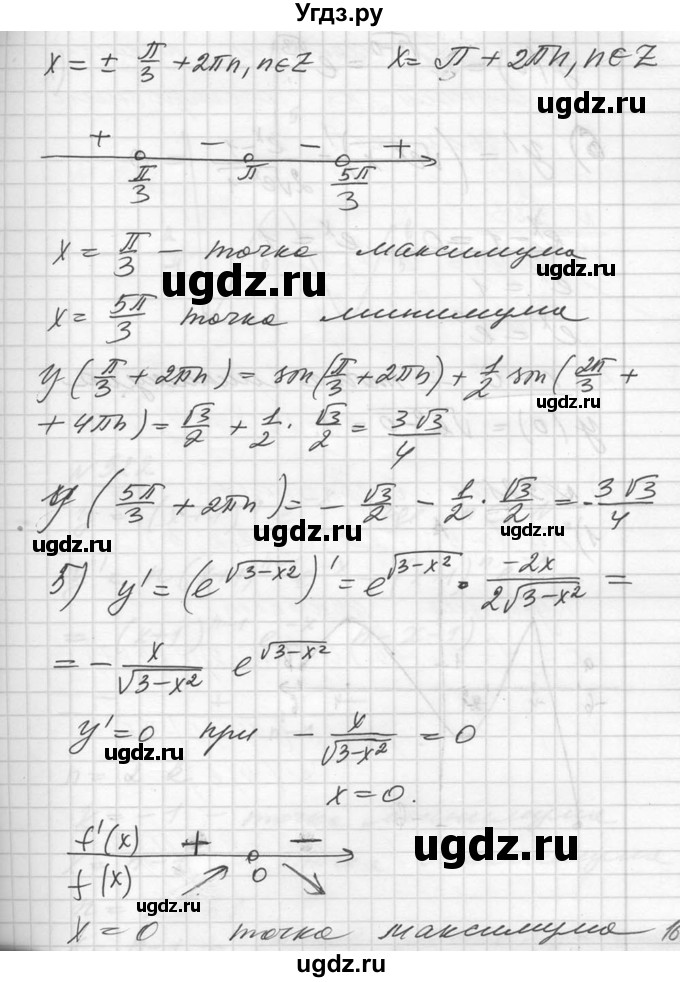 Угдз.ру
x = ± π/3 + 2πn, n∈Z   x = π + 2πn, n∈Z
ugdz.ru
+ − − +
π/3 π 5π/3
x = π/3 – точка максимума
ugdz.ru ugdz.ru
x = 5π/3 точка минимума
y(π/3 + 2πn) = sin(π/3 + 2πn) + 1/2 sin(2π/3 +
ugdz.ru
+ 4πn) = √3/2 + 1/2 · √3/2 = 3√3/4
y(5π/3 + 2πn) = − √3/2 − 1/2 · √3/2 = -3√3/4
ugdz.ru ugdz.ru
5) y' = (e^√(3−x²))' = e^√(3−x²) · −2x/(2√(3−x²)) =
= − x/√(3−x²) e^√(3−x²)
ugdz.ru
y' = 0 при − x/√(3−x²) = 0
ugdz.ru ugdz.ru
x = 0.
f'(x) + −
ugdz.ru
f(x) 0
ugdz.ru
x = 0 точка максимума 16
ugdz.ru
ugdz.ru